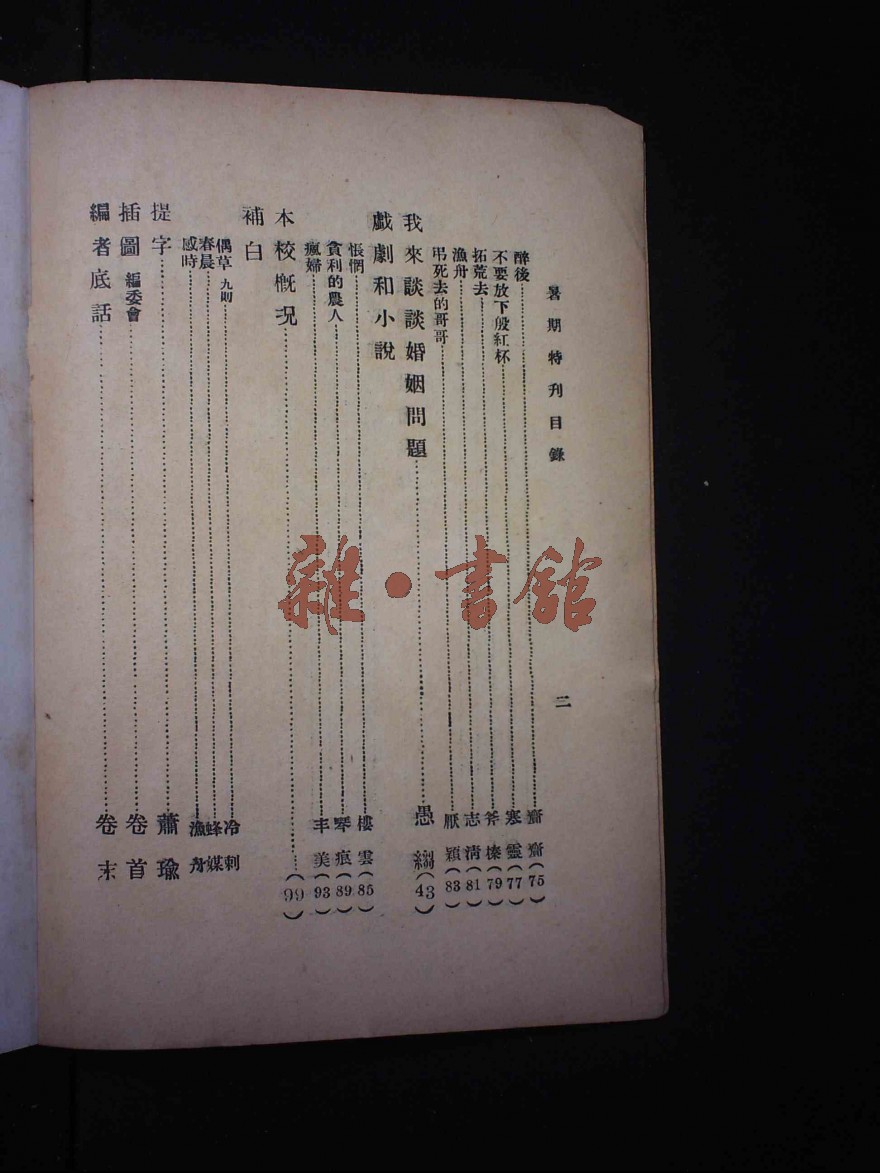 暑期特刊目錄 二
醉後……齋齋(75)
不要放下般紅杯……寒靈(77)
拓荒去……斧榛(79)
漁舟……志清(81)
吊死去的哥哥……厭穎(83)
我來談談婚姻問題……愚縐(43)
戲劇和小說
悵惘……樓雲(85)
貪利的農人……琴痕(89)
瘋婦……丰美(93)
本校概況……(99)
補白
偶草 九則……冷刺
春晨……蜂媒
感時……漁舟
提字……蕭瑜
插圖 編委會……卷首
編者底話……卷末
雜·書館